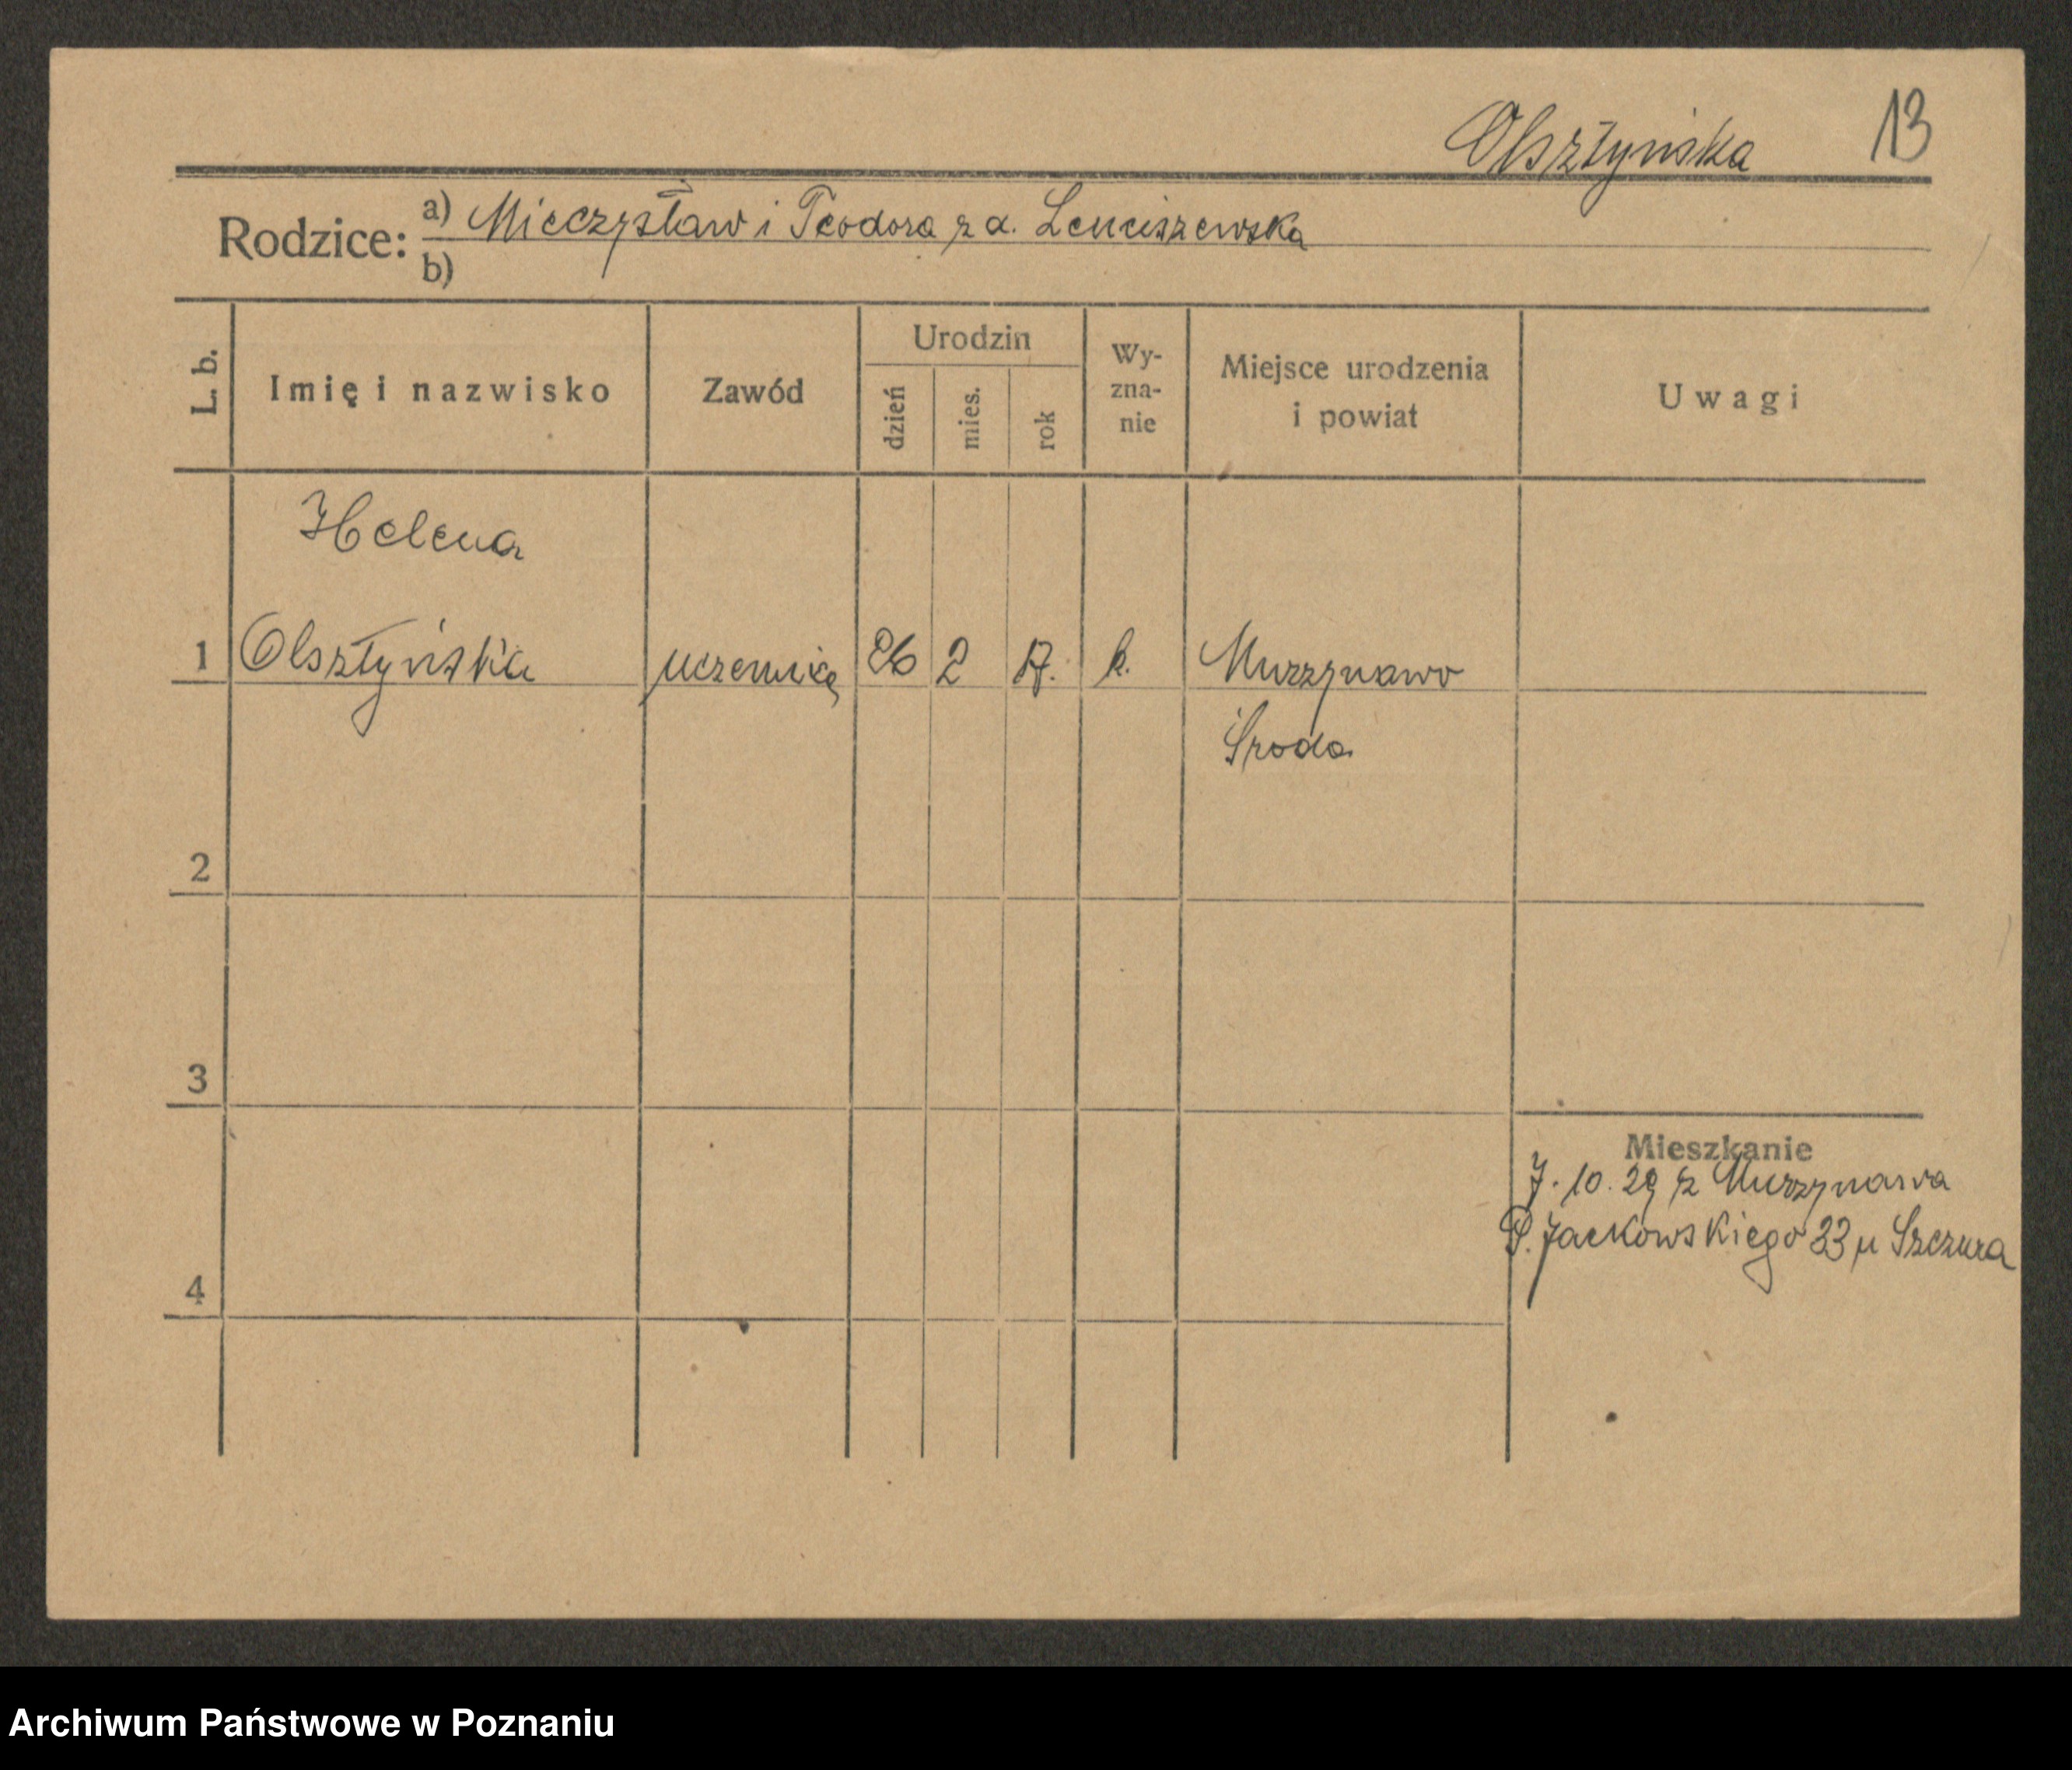 Olsztyńska 13
Rodzice: a) Mieczysław i Teodora z d. Lenciszewska
b)
L. b. Imię i nazwisko Zawód Urodzin dzień mies. rok Wy-zna-nie Miejsce urodzenia i powiat Uwagi
Helena
1 Olsztyńska uczenica 26 2 17. k. Murzynowo
Środa
2
3
Mieszkanie
7. 10. 29 z Murzynowa
P. Jackowskiego 33 u Szczura
4
Archiwum Państwowe w Poznaniu